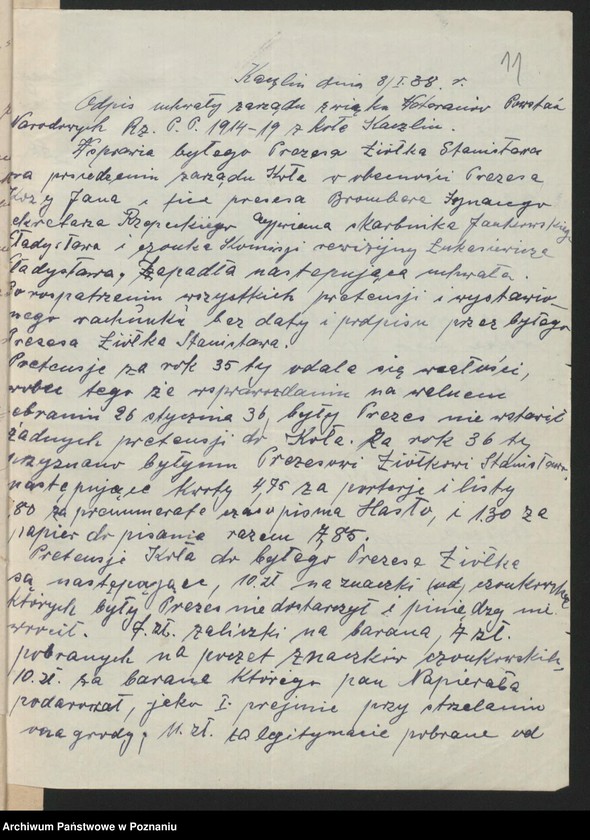 11
Kaczlin dnia 8/I.38. r.
Odpis uchwały zarządu związku Weteranów Powstań
Narodowych Rz. P. P. 1914-19 z koło Kaczlin.
Wsprawie byłego Prezesa Ziółka Stanisława
na posiedzeniu zarządu Koła w obecności Prezesa
Jana i fice presesa Brombera Ignacego
sekretarza Rzepeckiego Cypriana skarbnika Jankowskiego
Władysława i czonka Komisji rewizyjny Łukasiewicza
Władysława, Zapadła następująca uchwała.
Po rospatrzeniu wszystkich pretensji i wystawio-
nego rachunku bez daty i podpisu przez byłego
Prezesa Ziółka Stanisława.
Pretensje za rok 35 ty odala się wcałości,
wobec tego że wsprawozdaniu na walnem
zebraniu 26 stycznia 36, były Prezes nie wstawił
żadnych pretensji do Koła. Za rok 36 ty
przyznano byłymu Prezesowi Ziółkowi Stanisławowi
następujące kwoty 4,75 za portorje i listy
1,80 za prenumerate czasopisma Hasło, i 1.30 za
papier do pisania razem 7,85.
Pretensje Koła do byłego Prezesa Ziółka
są następujące, 10.zł na znaczki (od) czonkowskie
których były Prezes niedostarczył i piniedzy nie
wrócił. 7.zł. zaliczki na barana, 7 zł.
pobranych na poczet znaczków czonkowskich,
10.zł. za barana którego pan Napierała
podarował, jako I. premie przy strzelaniu
o nagrody; 11.zł. za legitymacie pobrane od
Archiwum Państwowe w Poznaniu